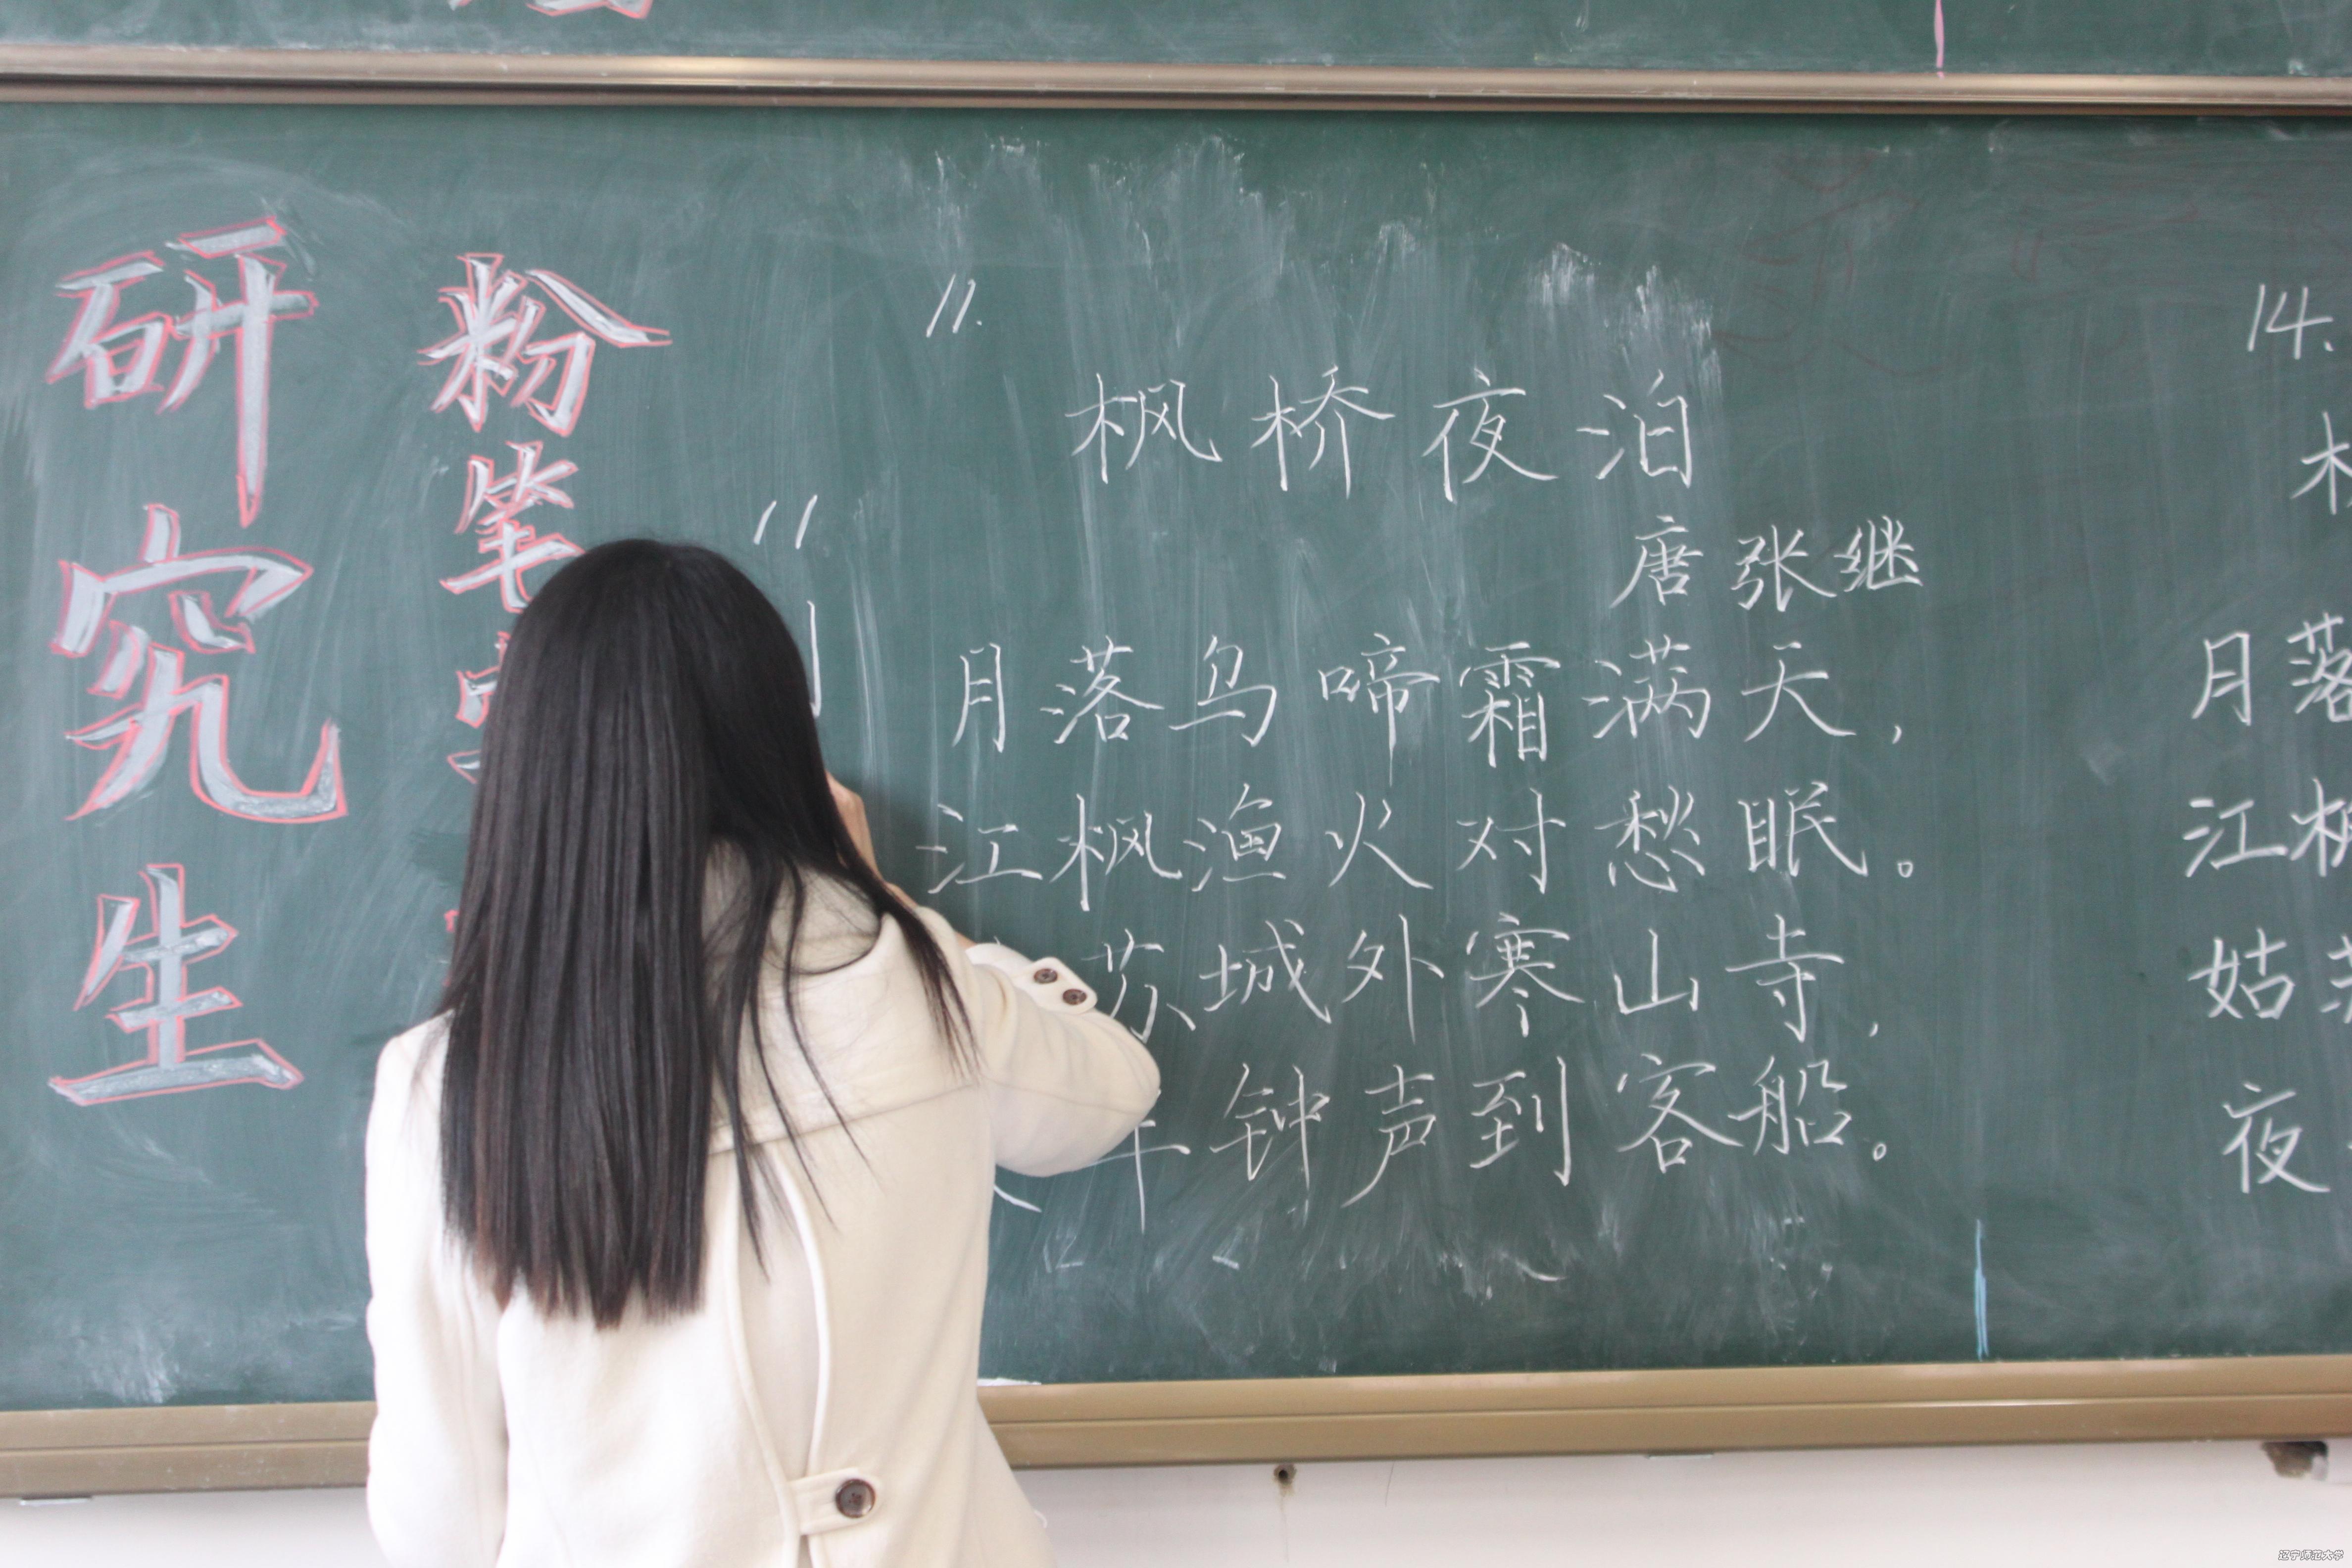 研究生
粉笔
11.
枫桥夜泊
唐 张继
月落乌啼霜满天，
江枫渔火对愁眠。
苏城外寒山寺，
半钟声到客船。
14.
月落
江枫
姑苏
夜
辽宁师范大学